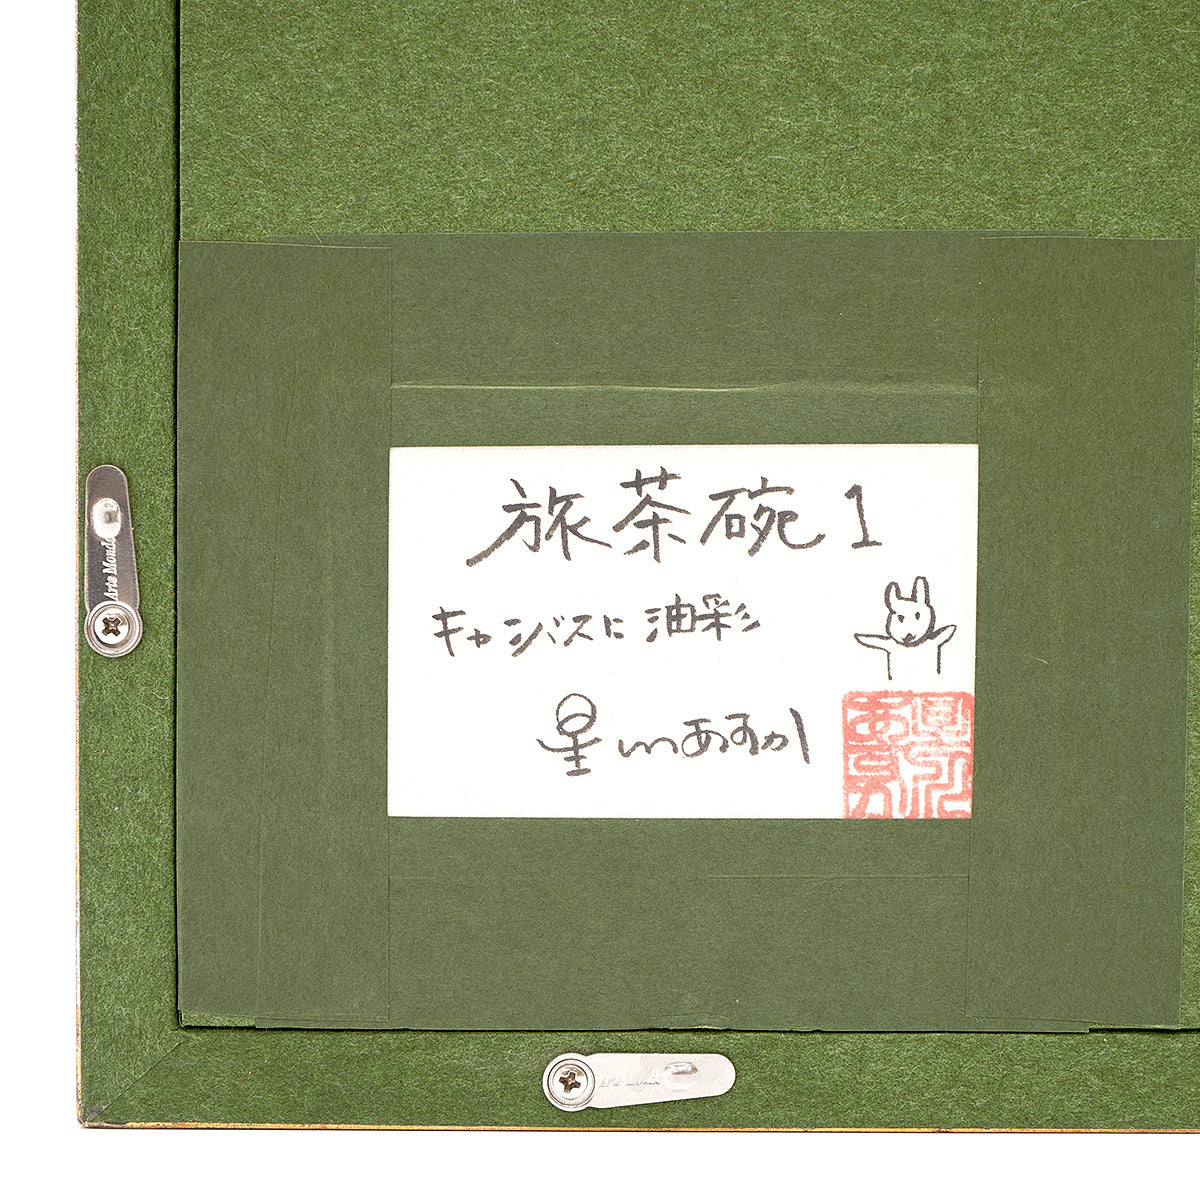 旅茶碗1
キャンバスに油彩
星山あすか
Arte Mondo
Arte Mondo